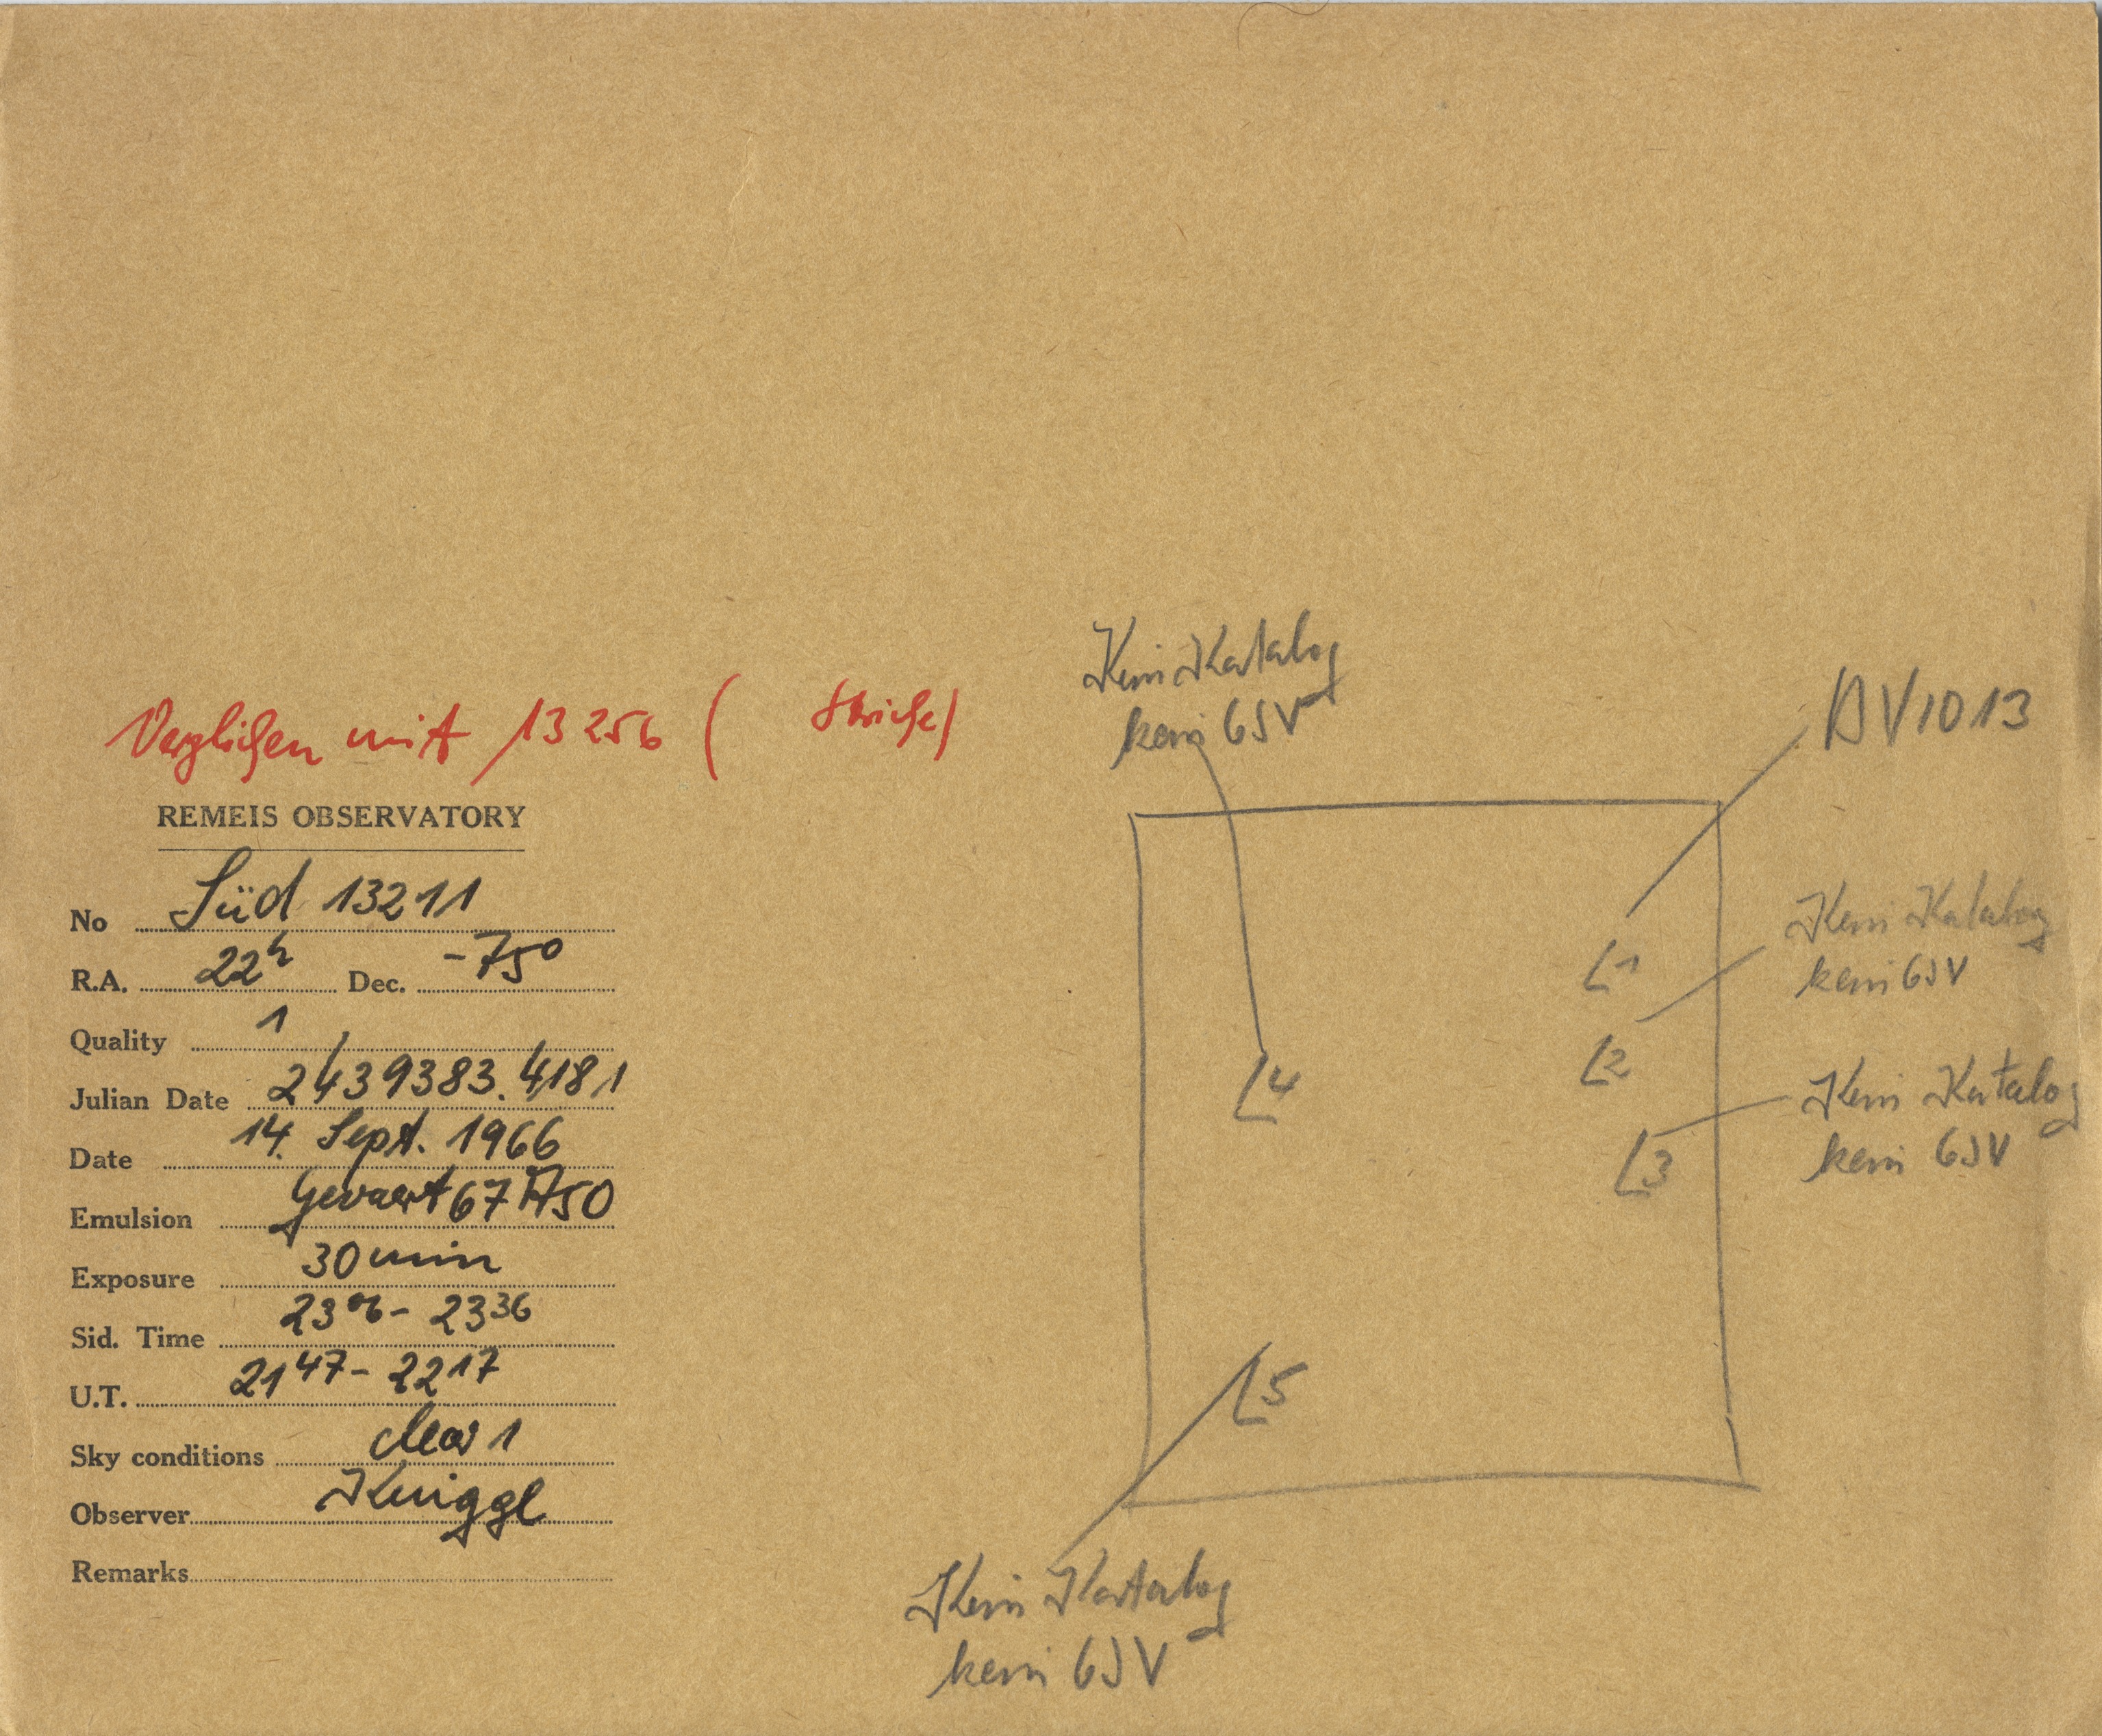 Verglichen mit 13256 ( Striche)
REMEIS OBSERVATORY
No Süd 13211
R.A. 22h Dec. -75°
Quality 1
Julian Date 2439383.4181
Date 14. Sept. 1966
Emulsion Gevaert 67A50
Exposure 30min
Sid. Time 23 06 - 23 36
U.T. 21 47 - 22 17
Sky conditions clear 1
Observer Knigge
Remarks
Kein Katalog
kein GSV
BV1013
1
Kein Katalog
kein GSV
2
Kein Katalog
kein GSV
3
4
5
Kein Katalog
kein GSV